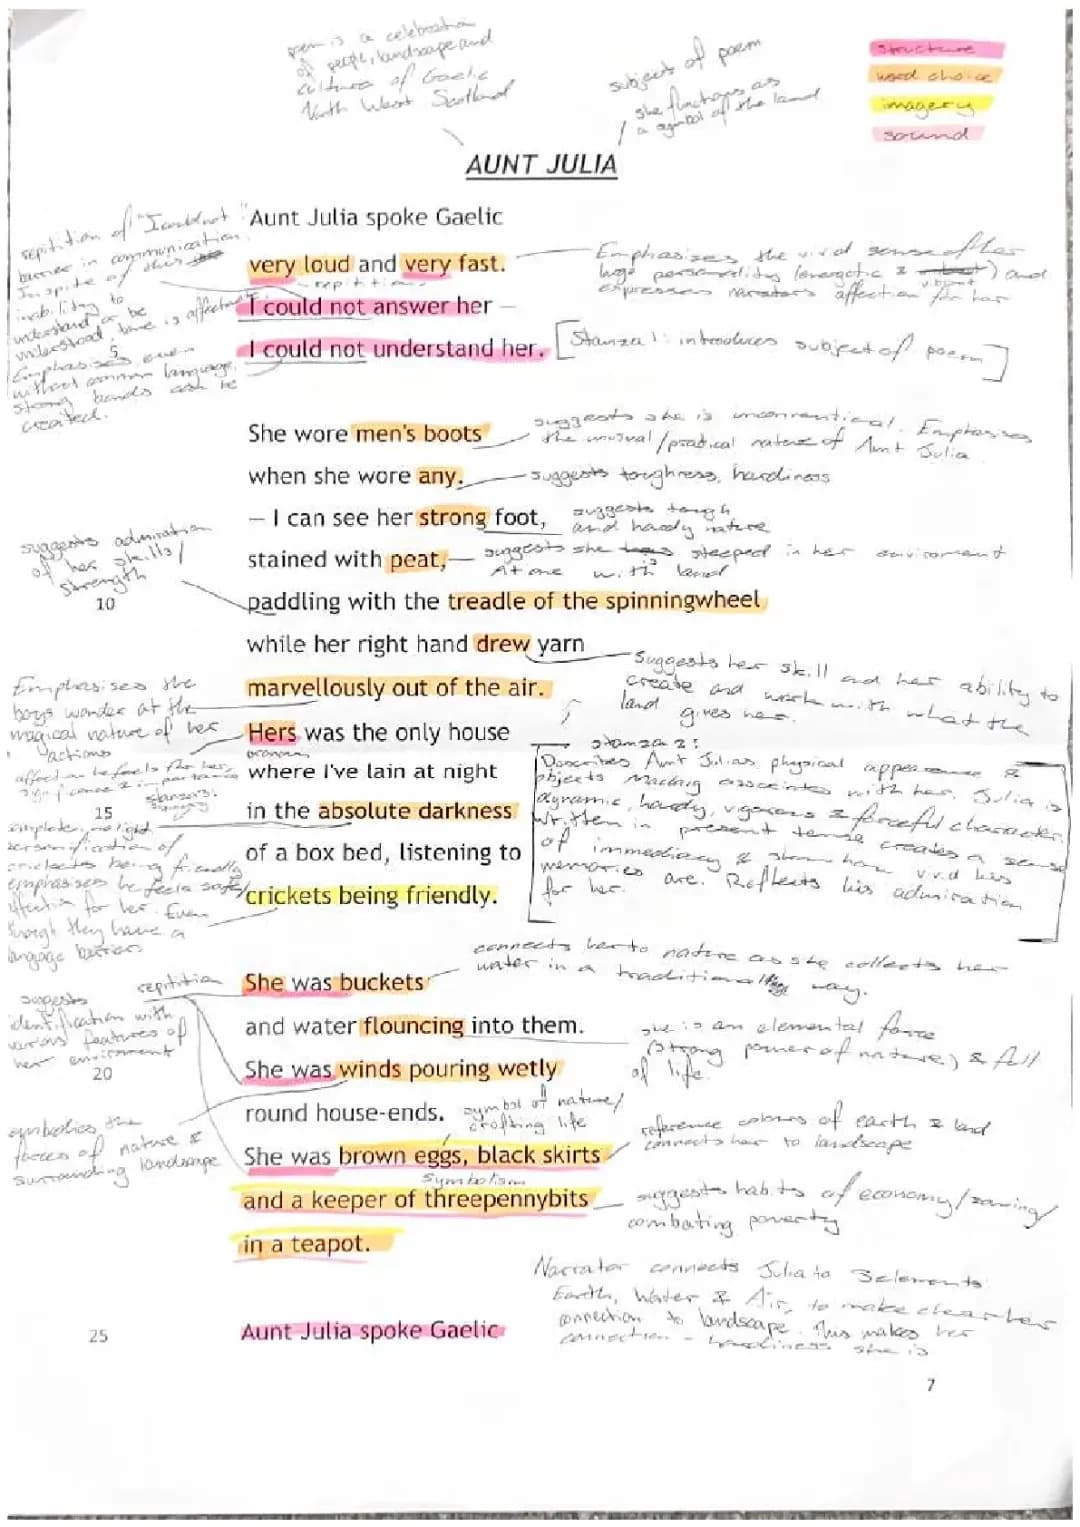 poem is a celebration
of people, landscape and
culture of Gaelic
North West Scotland
subject of poem
she functions as
a symbol of the land
structure
word choice
imagery
sound
AUNT JULIA
Aunt Julia spoke Gaelic
very loud and very fast.
repitition
I could not answer her —
I could not understand her.
repitition of "I could not"
barrier in communication.
Inspite of this
inability to
understand or be
understood, tone is affectionate
5
Emphasises even
without common language,
strong bonds can be
created.
Emphasizes the vivid sense of her
huge personality (energetic & vibrant) and
expresses narrators affection for her
[Stanza 1: introduces subject of poem]
She wore men's boots
when she wore any.
– I can see her strong foot,
stained with peat,
paddling with the treadle of the spinningwheel
while her right hand drew yarn
marvellously out of the air.
suggests she is unconventional. Emphasises
the unusual/practical nature of Aunt Julia
suggests toughness, hardiness
suggests tough
and hardy nature
suggests she is steeped in her enviroment
At one with land
suggests admiration
of her skills/
strength
10
Suggests her skill and her ability to
create and work with what the
land gives her.
Emphasises the
boys wonder at the
magical nature of her
actions
Hers was the only house
pronoun
where I've lain at night
in the absolute darkness
of a box bed, listening to
crickets being friendly.
affection he feels for her,
significance & importance
15
complete, no light
personification of
crickets being friendly
emphasises he feels safe/
affection for her. Even
though they have a
language barriers
stanza 2:
Describes Aunt Julias physical appearance &
objects Maccaig associates with her. Julia is
dynamic, hardy, vigorous & forceful character.
Written in present tense creates a sense
of immediacy & show how vivid his
memories are. Reflects his admiration
for her.
She was buckets
and water flouncing into them.
She was winds pouring wetly
round house-ends.
She was brown eggs, black skirts
symbolism
and a keeper of threepennybits
in a teapot.
connects her to nature as she collects her
water in a traditional way.
repitition
suggests
identification with
various features of
her enviroment
20
she is an elemental force
(strong power of nature) & full
of life.
symbol of nature/
crofting life
symbolises the
forces of nature &
surrounding landscape
reference colours of earth & land
connects her to landscape
suggests habits of economy/saving/
combating poverty
Narrator connects Julia to 3 elements
Earth, Water & Air, to make clear her
connection to landscape. This makes her
connection - she is
25
Aunt Julia spoke Gaelic
7